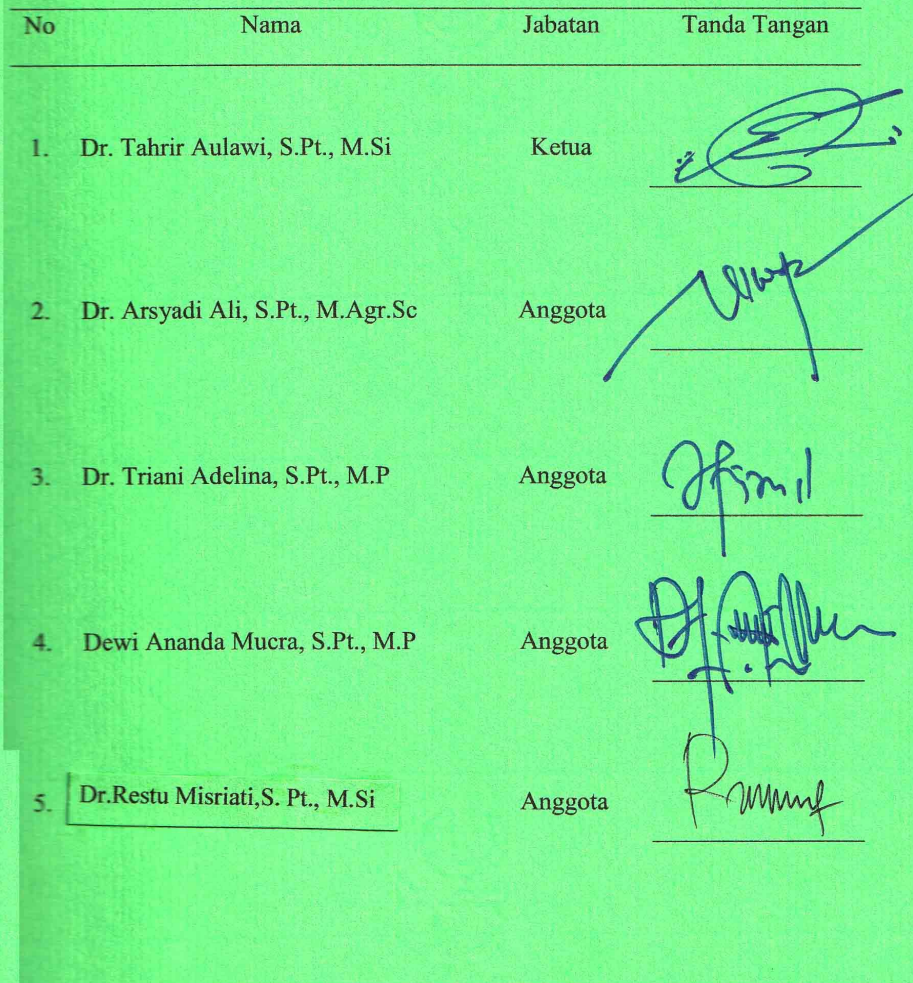 No Nama Jabatan Tanda Tangan
1. Dr. Tahrir Aulawi, S.Pt., M.Si Ketua
2. Dr. Arsyadi Ali, S.Pt., M.Agr.Sc Anggota
3. Dr. Triani Adelina, S.Pt., M.P Anggota
4. Dewi Ananda Mucra, S.Pt., M.P Anggota
5. Dr.Restu Misriati,S. Pt., M.Si Anggota